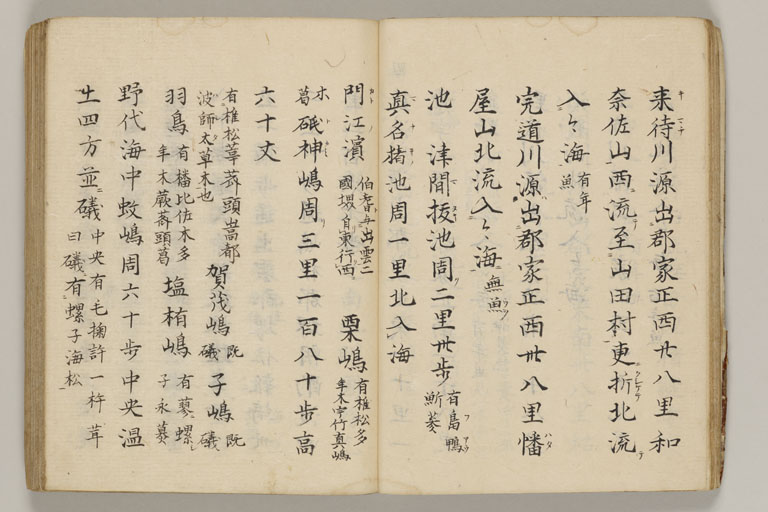 来待川源出郡家正西卄八里和
奈佐山西流至山田村更折北流
入々海有年魚
完道川源出郡家正西卅八里幡
屋山北流入々海無魚
池 津間抜池周二里卅步有鳥鴨鮒菱
真名猪池周一里北入海
門江濱伯耆与出雲二國堺自東行西 粟嶋有椎松多年木宇竹真嶋葛木
砥神嶋周三里一百八十步高
六十丈有椎松莘薺頭蒿都波師太草木也 賀茂嶋既礒 子嶋既礒
羽嶋有椿比佐木多年木蕨薺頭蒿 塩楯嶋有蓼螺子永蓼
野代海中蚊嶋周六十步中央涅
土四方並礒中央有毛掬許一杵茸曰礒有螺子海松